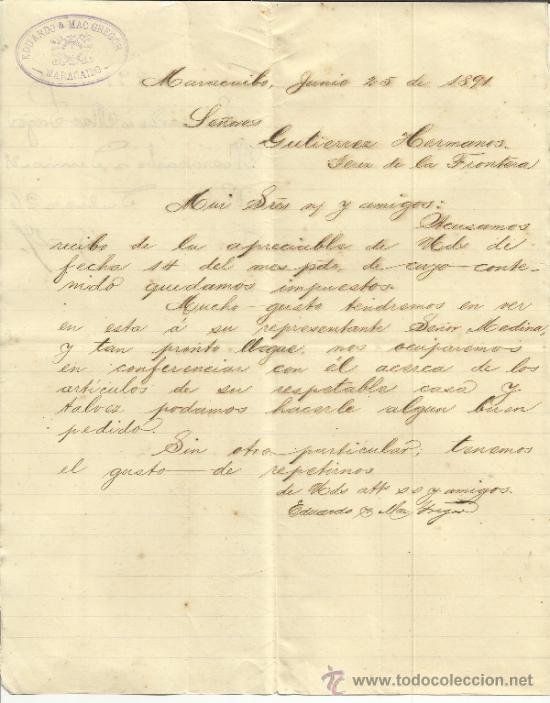 EDUARDO & MAC GREGOR
MARACAIBO
Maracaibo, Junio 25 de 1891
Señores
Gutierrez Hermanos.
Jerez de la Frontera
Mui Sres n/ y amigos:
Acusamos
recibo de la apreciable de Uds de
fecha 14 del mes pdo, de cuyo conte-
nido quedamos impuestos.
Mucho gusto tendremos en ver
en esta á su representante Señor Medina,
y tan pronto llegue, nos ocuparemos
en conferenciar con él acerca de los
artículos de su respetable casa y
talvez podamos hacerle algun buen
pedido.
Sin otro particular, tenemos
el gusto de repetirnos
de Uds att ss y amigos.
Eduardo & Mac Gregor
todocoleccion
www.todocoleccion.net